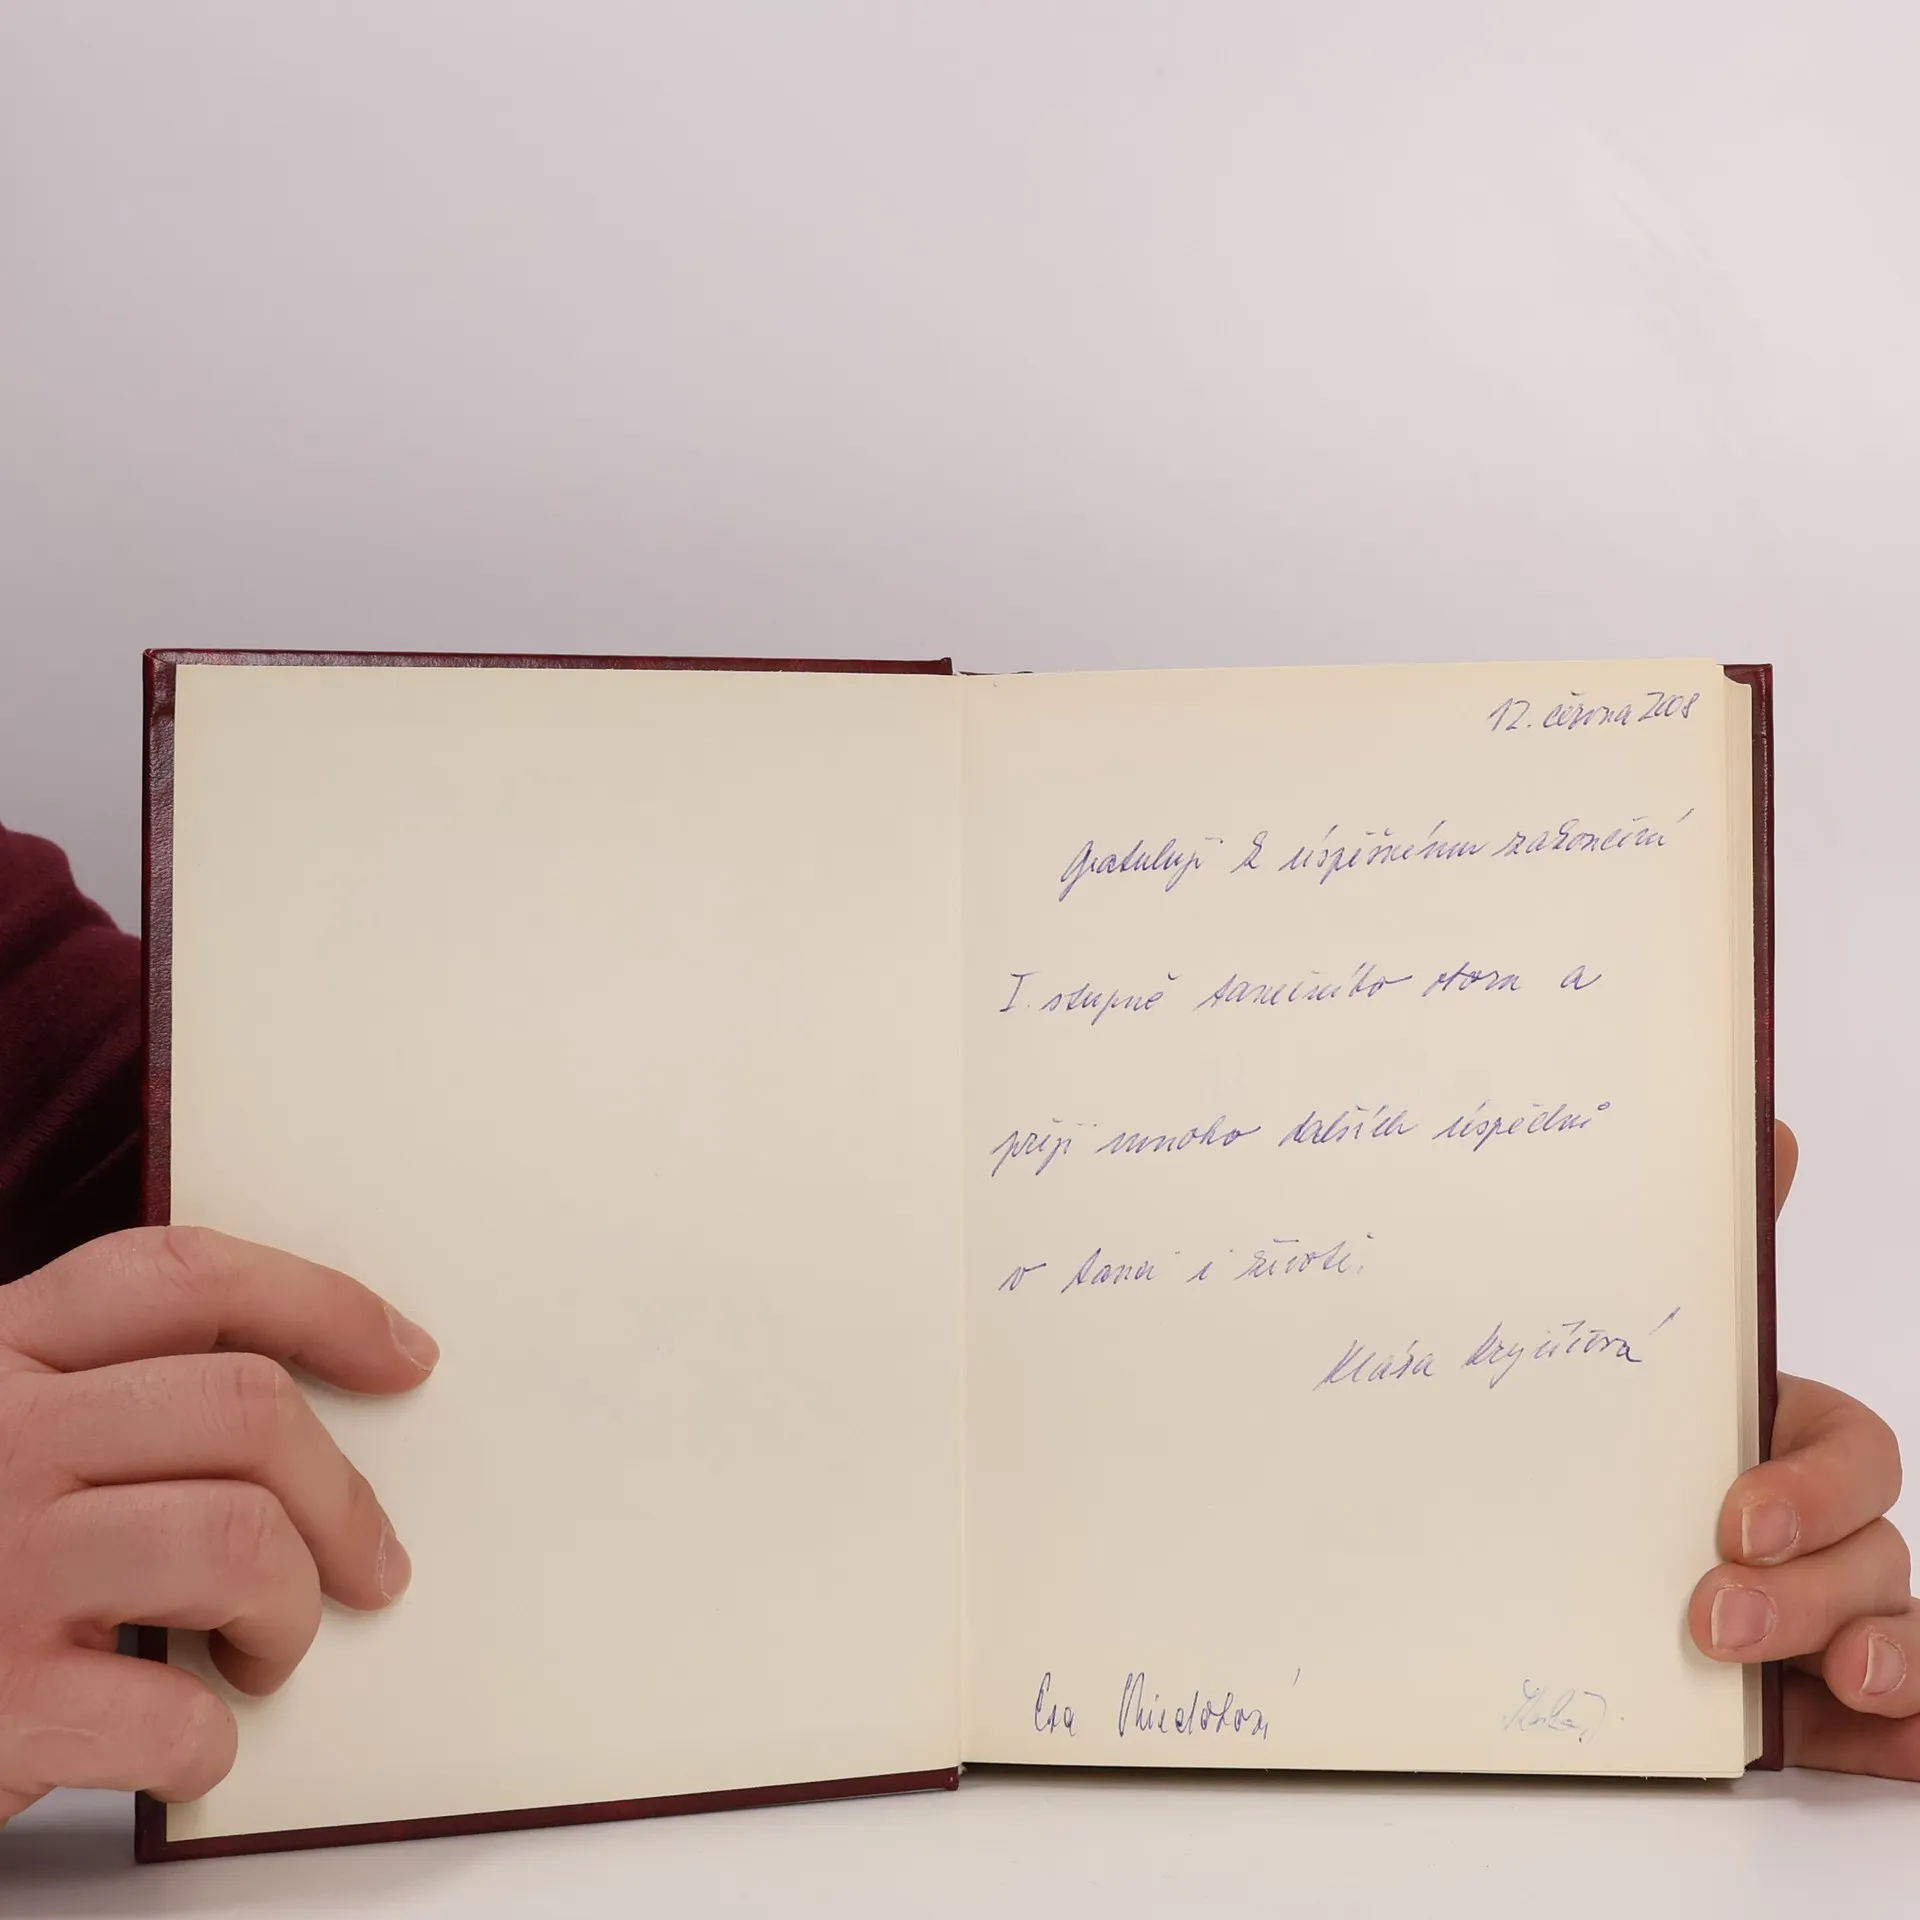 12. června 2008
Gratuluji k úspěšnému zakončení
I. stupně tanečního oboru a
přeji mnoho dalších úspěchů
v tanci i životě.
Klára
Eva